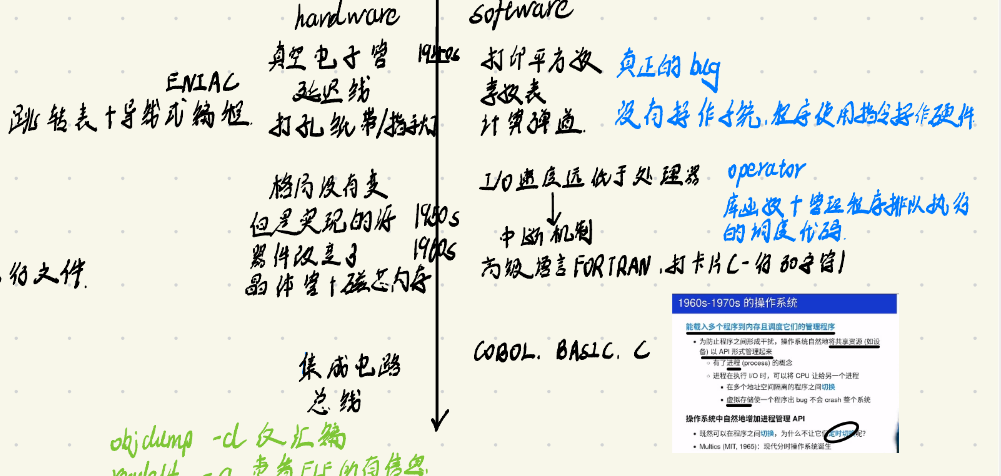 hardware
software
真空电子管 1940s
延迟线
打孔纸带/指示灯
ENIAC
跳转表+导线式编程
打印平方数
素数表
计算弹道.
真正的 bug
没有操作系统,程序使用指令操作硬件
格局没有变
但是实现的所 1950s
器件改变了 1960s
晶体管+磁芯内存
I/O速度远低于处理器
中断机制
高级语言 FORTRAN,打卡片(一行80字符)
operator
库函数+管理程序排队执行
的调度代码.
行文件.
集成电路
总线
COBOL. BASIC. C
1960s-1970s 的操作系统
能载入多个程序到内存且调度它们的管理程序
• 为防止程序之间形成干扰,操作系统自然地将共享资源 (如设
备) 以 API 形式管理起来
◦ 有了进程 (process) 的概念
◦ 进程在执行 I/O 时,可以将 CPU 让给另一个进程
▪ 在多个地址空间隔离的程序之间切换
▪ 虚拟存储使一个程序出 bug 不会 crash 整个系统
操作系统中自然地增加进程管理 API
• 既然可以在程序之间切换,为什么不让它们定时切换呢?
• Multics (MIT, 1965):现代分时操作系统诞生
objdump -d 反汇编